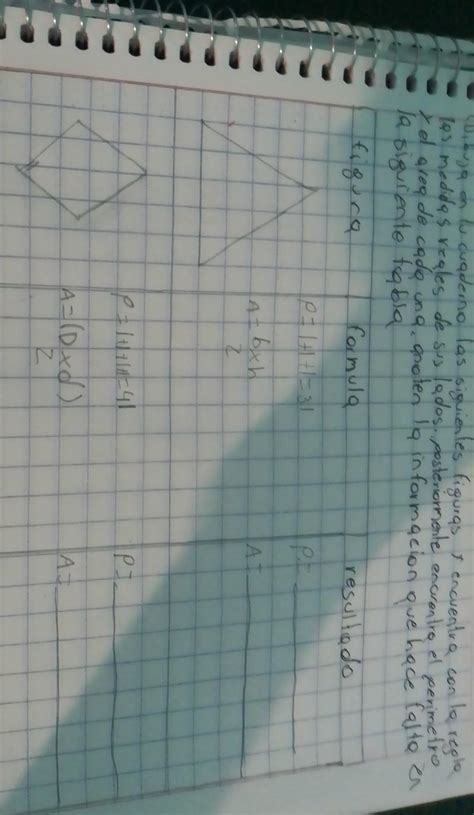 en tu cuaderno las siguientes figuras y encuentra con la regla
las medidas reales de sus lados, posteriormente encuentra el perimetro
y el area de cada una. anoten la informacion que hace falta en
la siguiente tabla
figura formula resultado
P=l+l+l=3l P=
A=bxh
2
A=
P=l+l+l+l=4l P=
A=(Dxd)
2
A=